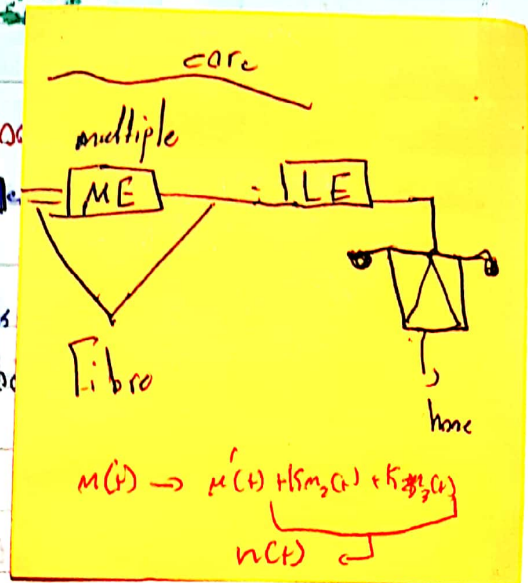 core
multiple
ME
LE
Fibro
home
m(t) → m'(t) + K m₂(t) + K m₃(t)
n(t)